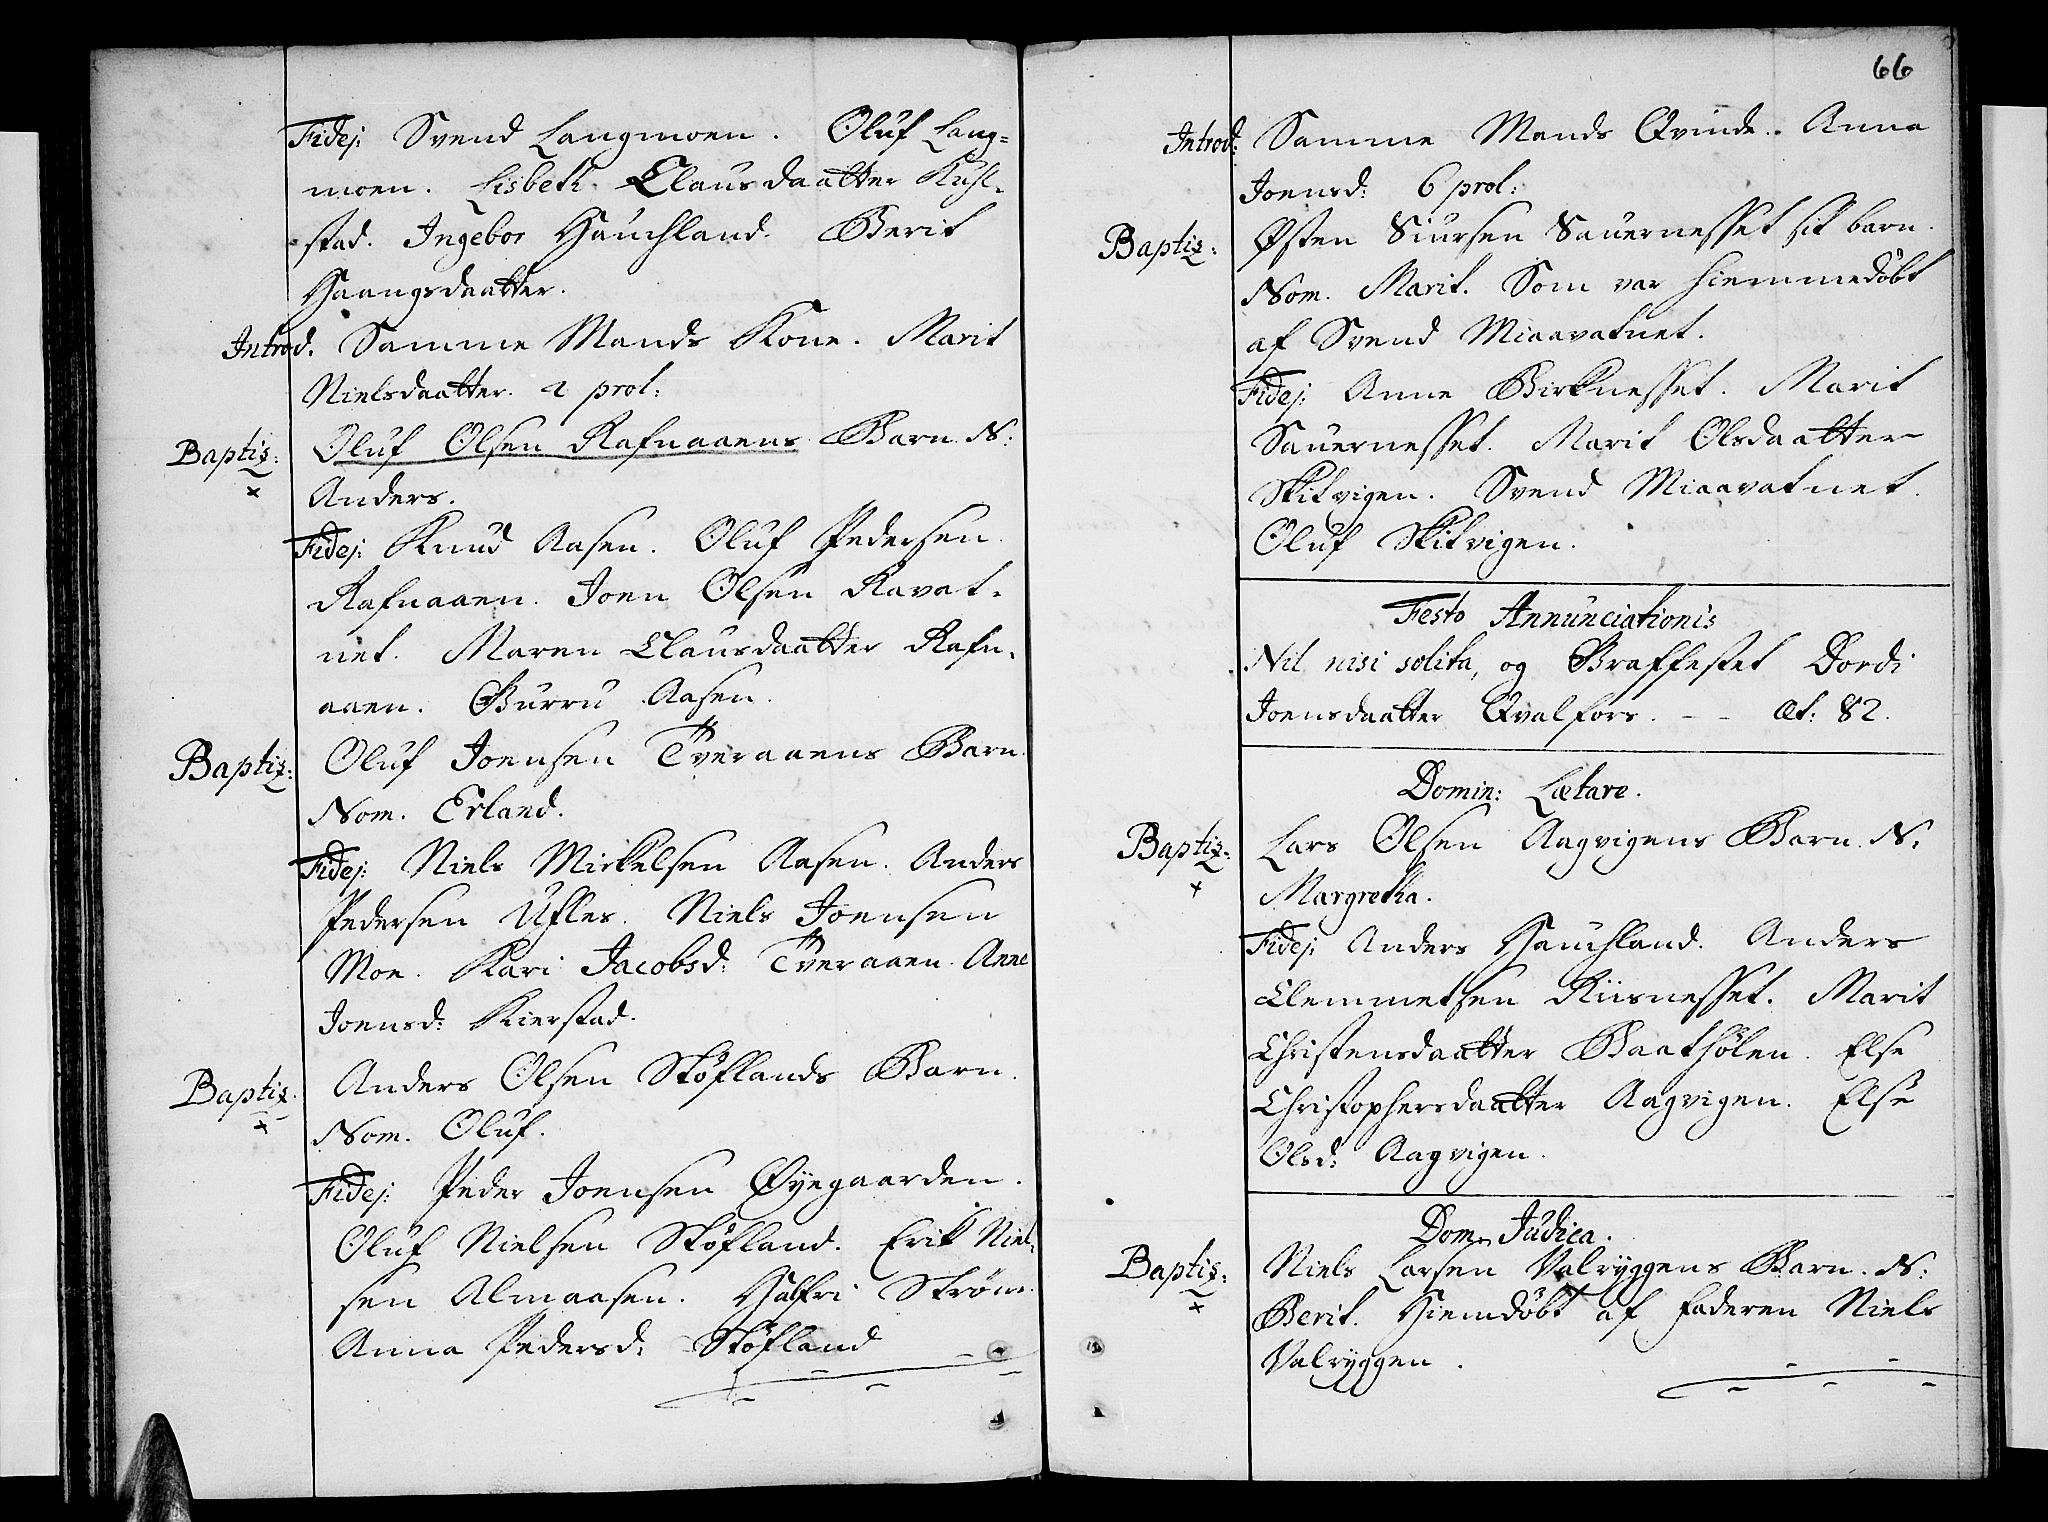 Fidej: Svend Langmoen. Oluf Lang=
moen. Lisbeth Clausdaatter Kuhl-
stad. Ingebor Hauchland. Berit
Haangsdaatter.
Introd. Samme Mands Kone. Marit
Nielsdaatter. 2 prol:
Baptiz: Oluf Olsen Rafnaaens Barn N:
Anders.
Fidej: Knud Aasen. Oluf Pedersen
Rafnaaen. Joen Olsen Ravat-
net. Maren Clausdaatter Rafn-
aaen. Gurru Aasen.
Baptiz: Oluf Joensen Tveraaens Barn
Nom. Erland.
Fidej: Niels Mickelsen Aasen. Anders
Pedersen Ufles. Niels Joensen
Moe. Kari Jacobsd: Tveraaen. Anne
Joensd: Kierstad.
Baptiz. Anders Olsen Støflands Barn.
Nom. Oluf.
Fidej: Peder Joensen Øyegaarden.
Oluf Nielsen Støfland. Erik Niel-
sen Almaasen. Halfri Strøm.
Anna Pedersd: Støfland
66
Introd: Samme Mands Qvinde. Anna
Joensd: 6 prol:
Baptiz: Østen Siursen Sauernesset sit barn.
Nom. Marit. Som var hiemmedøbt
af Svend Miaavatnet.
Fidej: Anne Birknesset. Marit
Sauernesset. Marit Olsdaatter
Skitvigen. Svend Miaavatnet.
Oluf Skitvigen.
Festo Annunciationis
Nil nisi solita, og Graffestet Dordi
Joensdaatter Qvalfors. - - Æt: 82.
Domin: Lætare.
Baptiz: Lars Olsen Aagvigens Barn N:
Margretha.
Fidej: Anders Hauchland. Anders
Clemmetsen Riisnesset. Marit
Christensdaatter Baathølen. Else
Christophersdaatter Aagvigen. Else
Olsd: Aagvigen.
Dom. Judica.
Baptiz: Niels Larsen Valryggens Barn. N:
Berit. Hiemdøbt af faderen Niels
Valryggen.